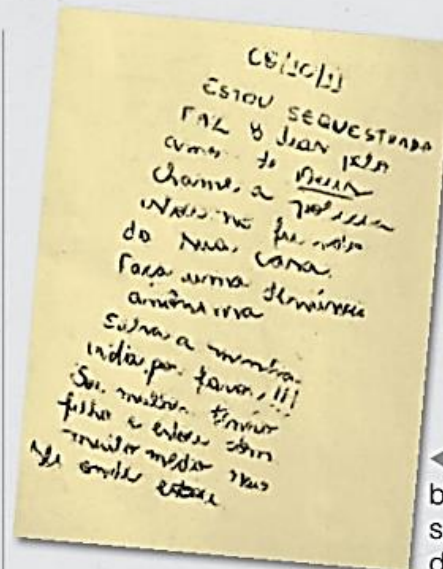 08/10/11
ESTOU SEQUESTRADA
FAZ 8 dias pelo
amor de Deus
chame a policia
da sua casa.
Faça uma denúncia
anônima
Salva a minha
vida por favor,!!!
Sou mulher tenho
filho e estou com
muito medo não
sei onde estou
b
s
d